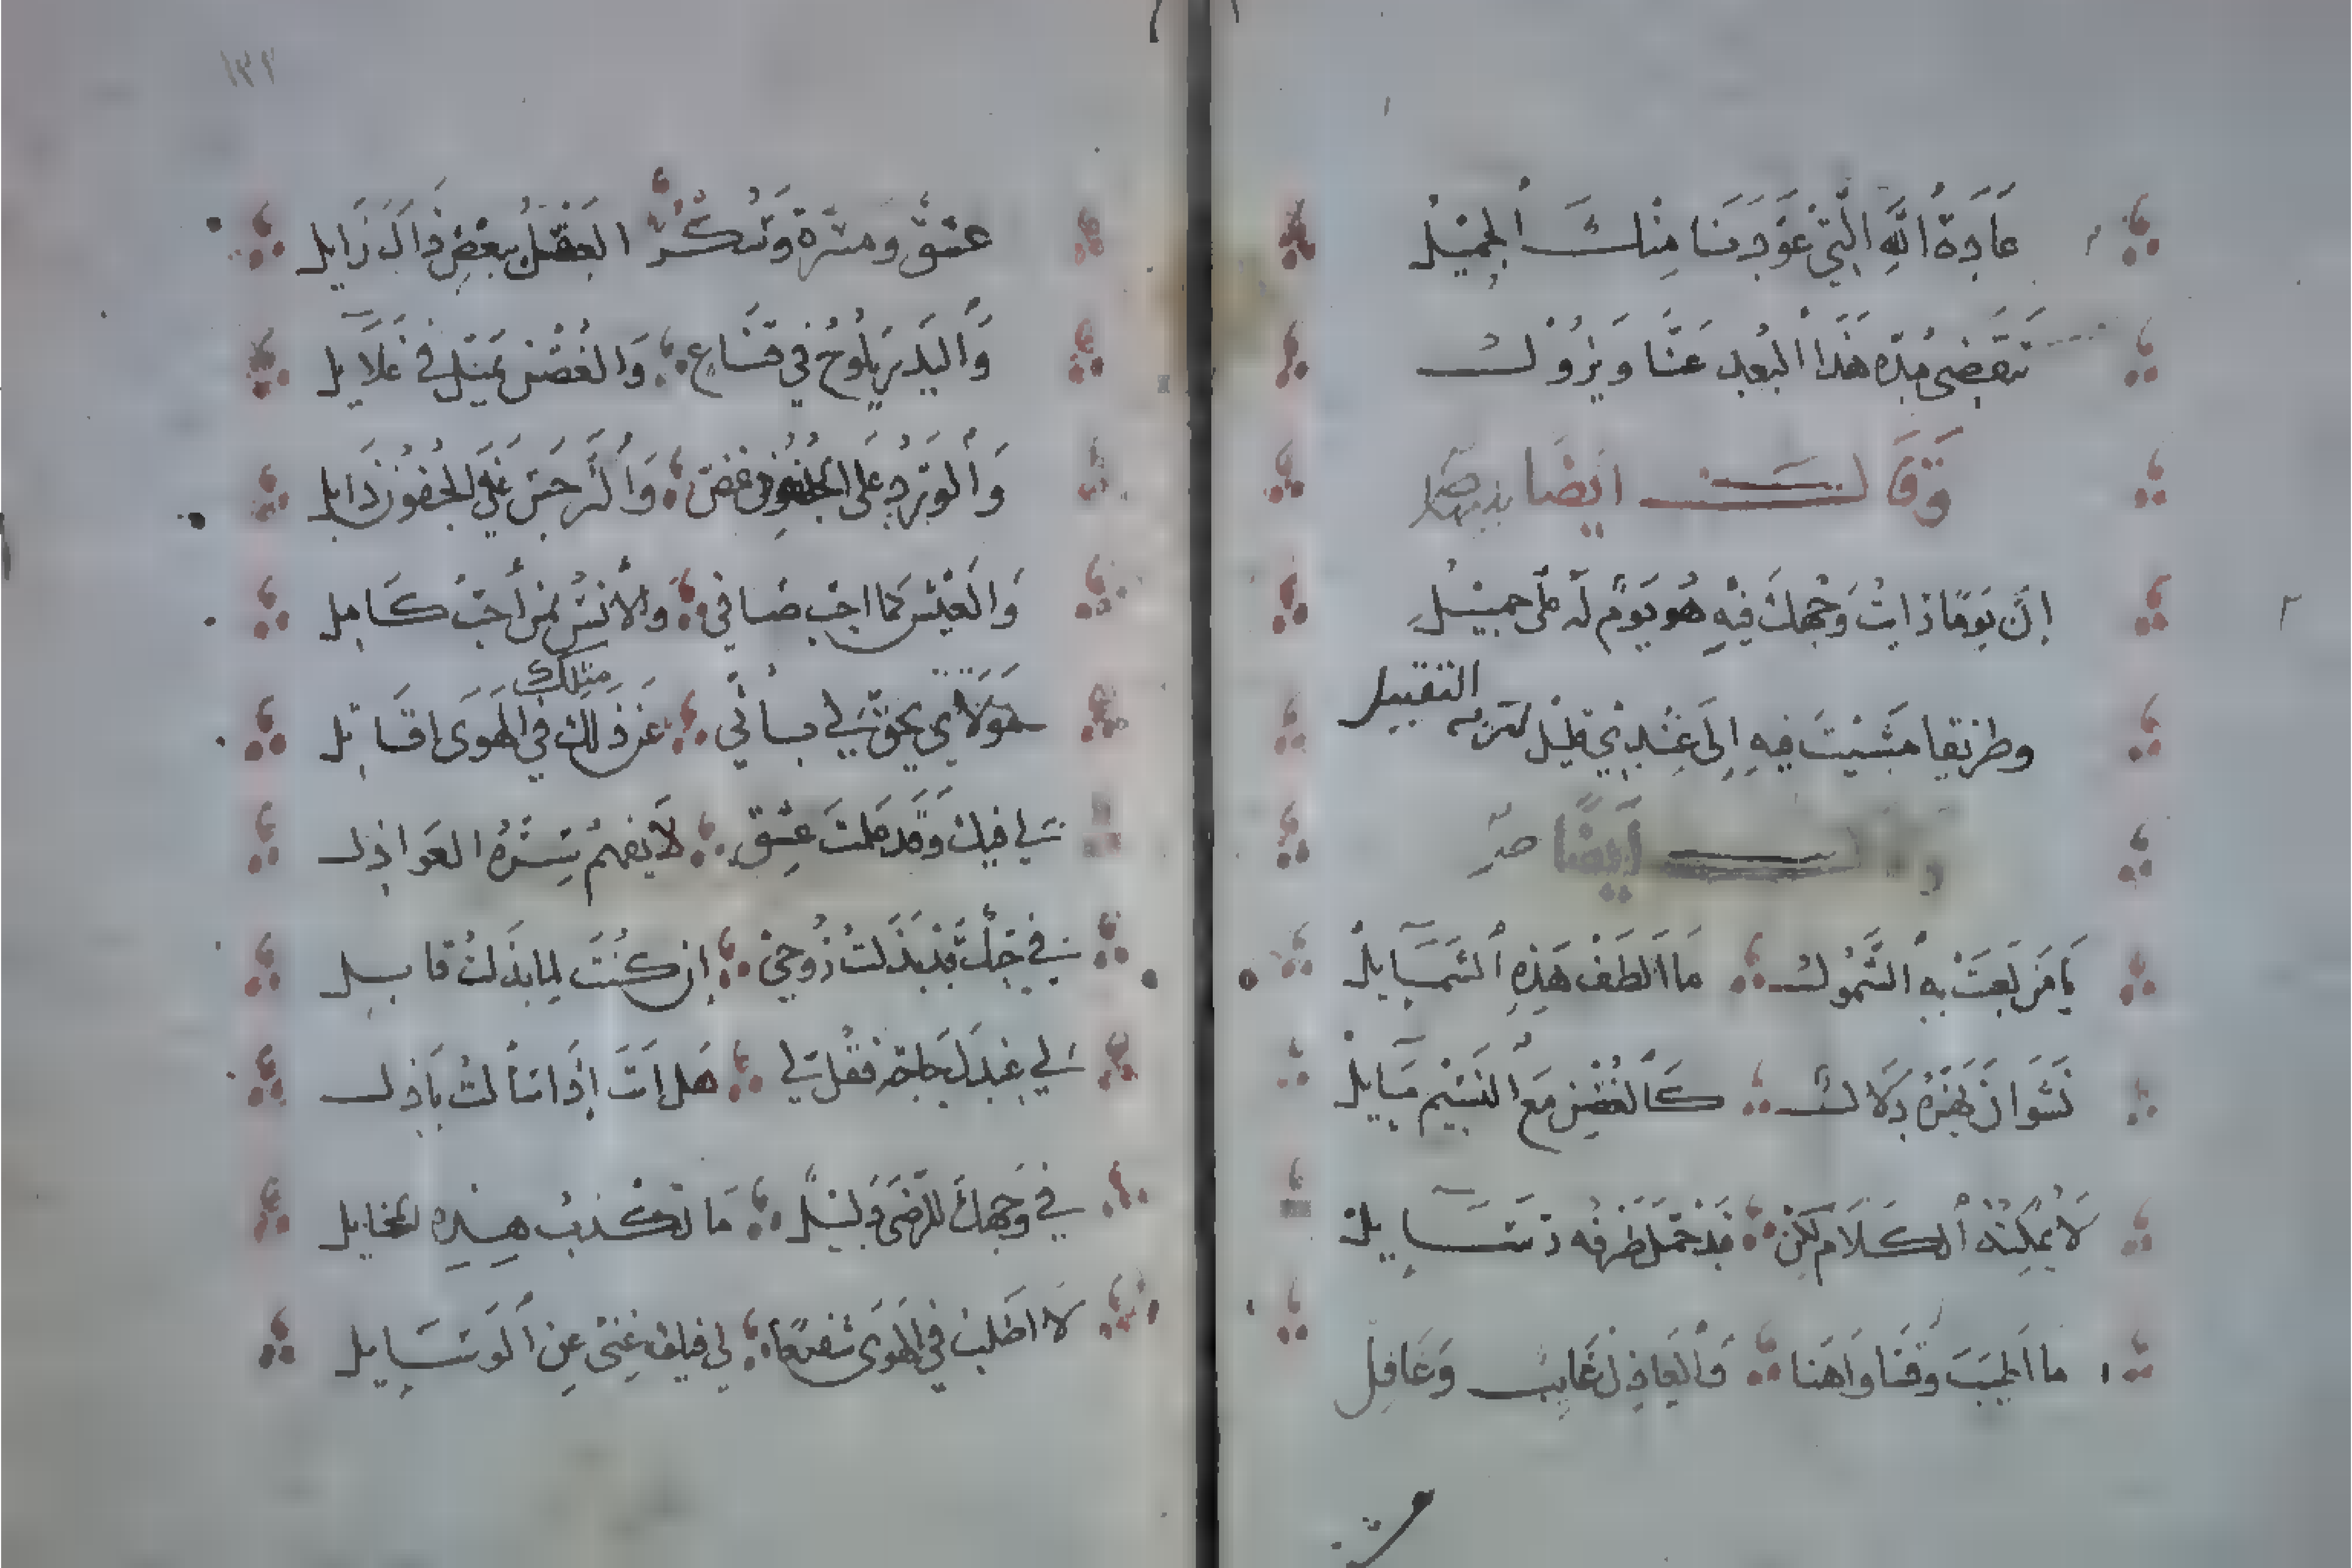 عَادَةُ اللَّهِ الَّتِي عَوَّدَنَا مِنْكَ الْجَمِيْلْ
تَنْقَضِي مُدّة هَذَا الْبُعْدِ عَنَّا وَيَزُوْلْ
وَقَالَ ايضًا
اِنَّ يَوْمًا رَايتُ وَجْهَكَ فِيْهِ هُو يَوْمٌ لَهُ عَلَى جَمِيْلِ
وطريقا مَشَيْتَ فيهِ اِلَى عِنْدِي قليل لتربه التقبيل
وقال اَيضًا
يَا مَنْ لَعِبَتْ بِهِ الشَّمُولْ مَا اَلطَفَ هَذِهِ الشَّمَايِلْ
نَشْوَانُ يَهُزُّهُ دَلَالٌ كَالْغُصْنِ مَعَ النَسِيْمِ مَايِلْ
لَا يُمْكِنُهُ الكَلَام لكِنْ قَدْ حَمَّلَ طَرْفَهُ رَسَايِلْ
مَا اَطْيَبَ وَقْتَنَا وَاَهْنَا وَالْعَاذِلُ غَايِبٌ وَغَافِلْ
١٣٢
عِشْقٌ وَمَسَرَّةٌ وَسُكْرٌ العَقْلُ بِبَعْضِ ذَاكَ زَايِلْ
وَالْبَدْر يَلُوحُ فِي قِنَاعٍ وَالغُصْنُ يَمِيْلُ فِي غَلَايِلْ
وَالْوَرْدُ عَلَى الخُدُودِ غَضّ وَالنَّرْجِسُ فِي الجُفُونِ ذَابِلْ
وَالعَيْشُ كَمَا احِبّ صَافِي وَالاُنْسُ بِمَنْ اُحِبّ كَامِلْ
مَوْلَايَ يَحِقّ لِي بِأَنِّي عَنْ مِثْلِكَ فِي الْهَوَى اقَاتِلْ
لِي فيكَ وَقَد عَلمتَ عِشْقٌ لَا يَفهمُ سِرَّهُ العَوَاذِلْ
فِي حُبِّكَ قَدْ بَذَلتُ رُوحِي اِن كُنْتَ لِمَا بَذَلتُ قابِلْ
لِي عِنْدَكَ حَاجَةٌ فَقُل لِي هَل اَنتَ اِذَا سَأَلتُ بَاذِلْ
فِي وَجْهِكَ لِلرّضَى دَلِيْلٌ مَا تَكْذِبُ هذِهِ المخَايِلْ
لَا اَطْلُبُ فِي الْهَوَى شَفِيعًا لِي فِيكَ غِنًى عَنِ الْوَسَايِلْ